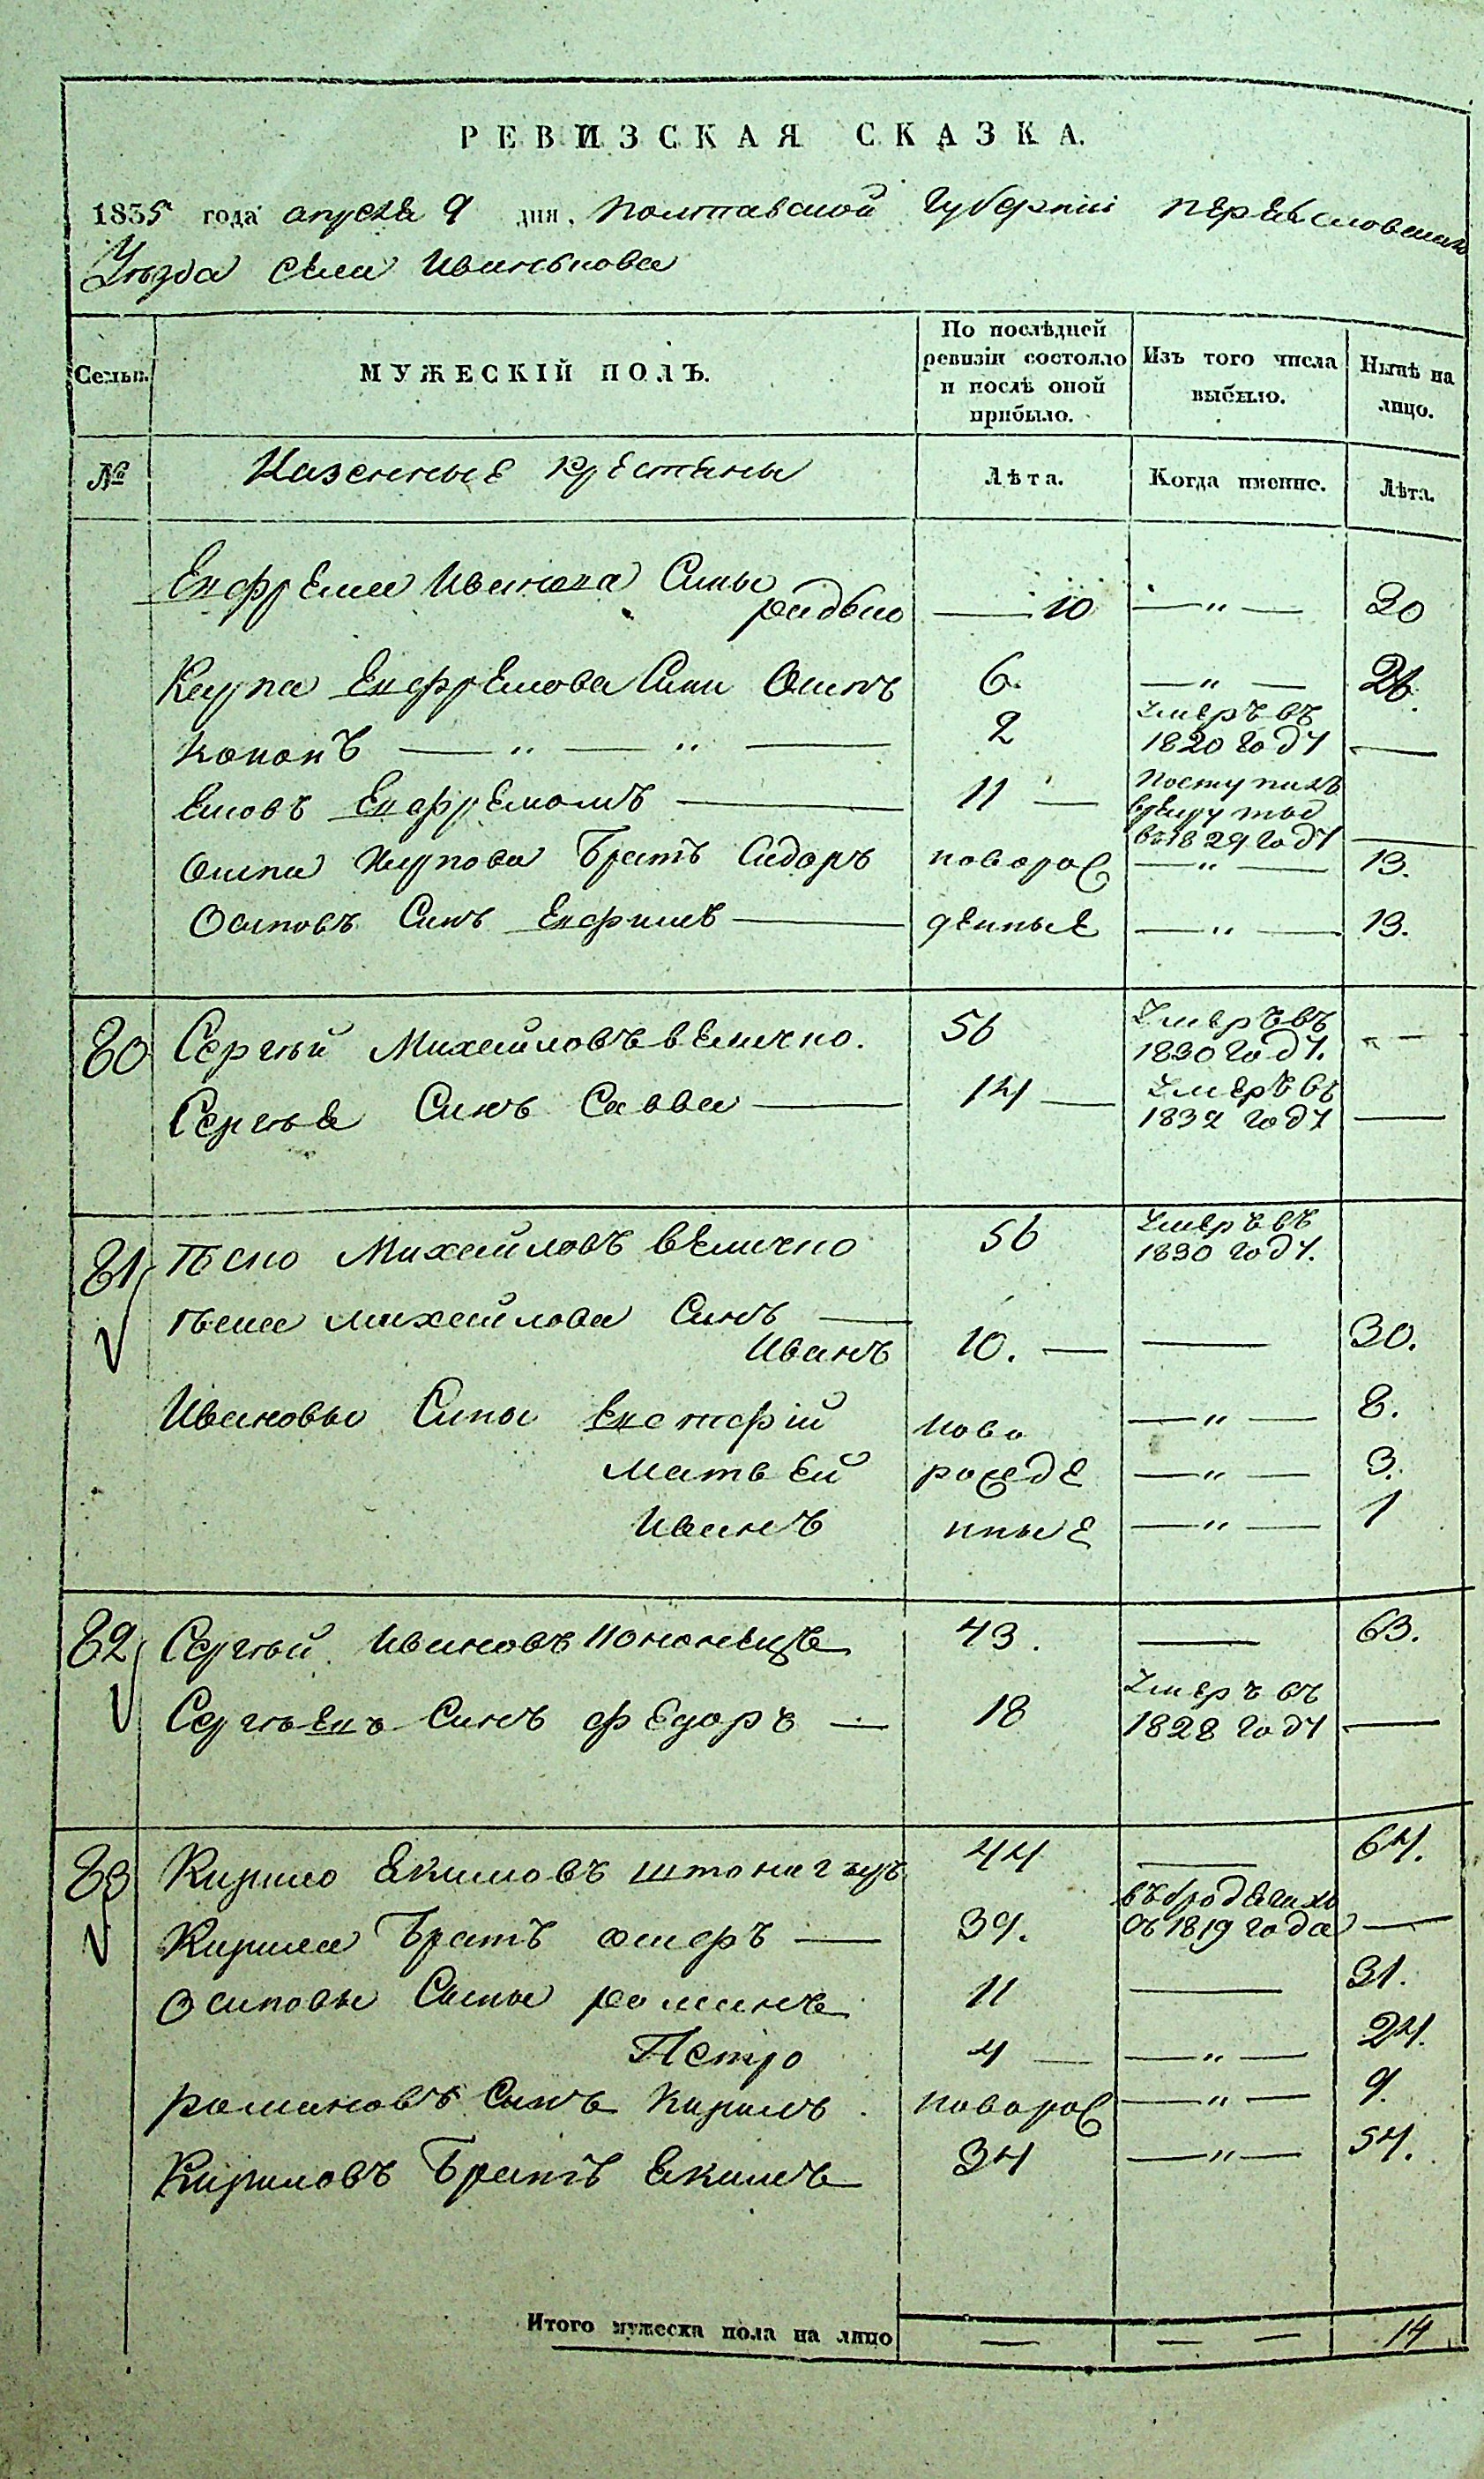 РЕВИЗСКАЯ СКАЗКА.
1835 года апреля 9 дня, Полтавской Губернии Переясловскаго
Уезда Села Иванькова
Семьи. МУЖЕСКІЙ ПОЛЪ. По послѣдней ревизіи состояло и послѣ оной прибыло. Изъ того числа выбыло. Нынѣ на лицо.
№ Казенные крестяны Лѣта. Когда именно. Лѣта.
Евфрема Иванова Сины
10 — „ — 30
Карпа Евфремова Сини Осипъ 6. — „ — 26.
Кононъ — „ — „ — 2 Умеръ въ 1820 Году —
Евфремомъ — 11 — Поступилъ в 1829 Году —
Осипа Карпова Братъ Сидоръ новорож — „ — 13.
Осиповъ Синъ Ефимъ — денные — „ — 13.
80 Сергѣй Михайловъ величко. 56 Умеръ въ 1830 Году. „ —
Сергѣя Синъ Савва — 14 — Умеръ въ 1832 Году —
81 Михайловъ величко 56 Умеръ въ 1830 Году.
Михайлова Синъ —
Иванъ 10. — — 30.
Ивановы Сины ново — „ — 8.
Матвей рожде — „ — 3.
Иванъ нные — „ — 1
82 Сергѣй Ивановъ Кононецъ 43. — 63.
Синъ Федоръ — 18 Умеръ въ 1828 Году —
83 Кирило Екимовъ 44 — 64.
Кирила Братъ — 39. въ бродягахъ съ 1819 года —
Осиповы Сыны романъ 11 — 31.
Петро 4 — — „ — 24.
романовъ Синъ Кирилъ. новорож — „ — 9.
Кириловъ Братъ Екимъ 34 — „ — 54.
Итого мужеска пола на лицо — — — 14